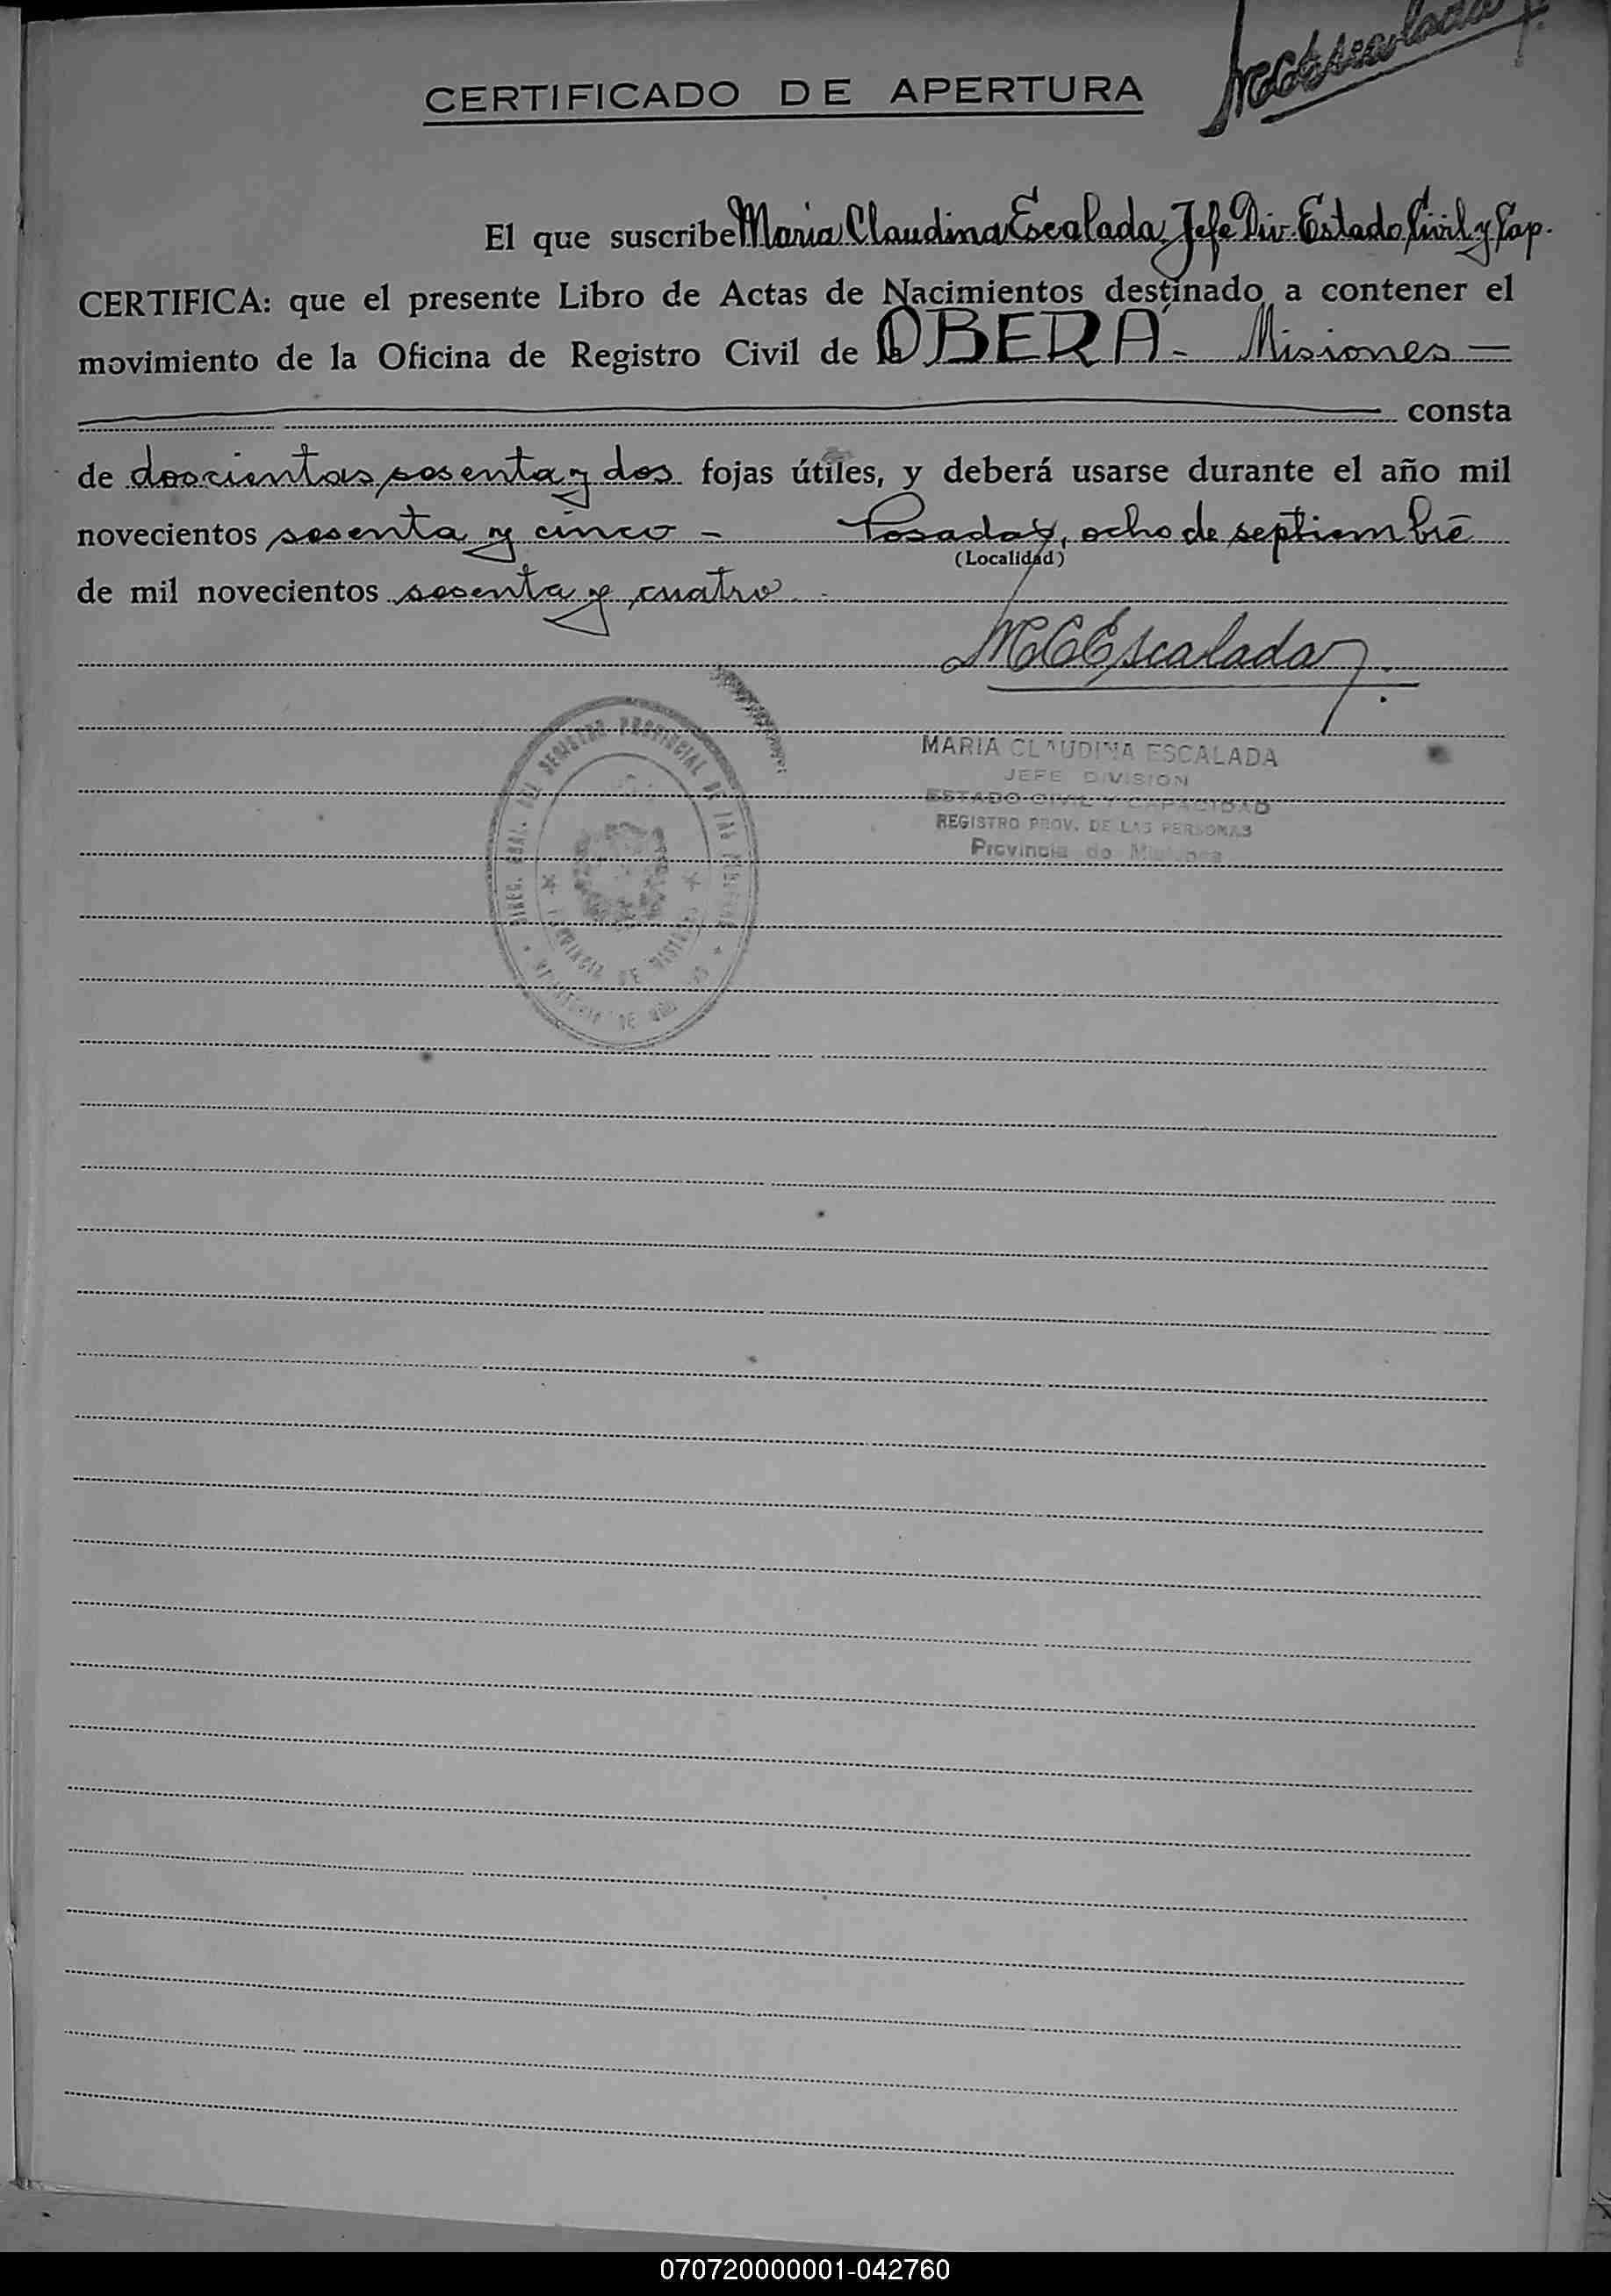 MCEscalada
CERTIFICADO DE APERTURA
El que suscribe Maria Claudina Escalada, Jefe Div. Estado Civil y Cap.
CERTIFICA: que el presente Libro de Actas de Nacimientos destinado a contener el
movimiento de la Oficina de Registro Civil de OBERÁ - Misiones —
consta
de doscientas sesenta y dos fojas útiles, y deberá usarse durante el año mil
novecientos sesenta y cinco - Posadas, ocho de septiembre
(Localidad)
de mil novecientos sesenta y cuatro.
MCEscalada
MARIA CLAUDINA ESCALADA
JEFE DIVISION
ESTADO CIVIL Y CAPACIDAD
REGISTRO PROV. DE LAS PERSONAS
Provincia de Misiones
DIREC. GRAL. DEL REGISTRO PROVINCIAL DE LAS PERSONAS
PROVINCIA DE MISIONES
070720000001-042760